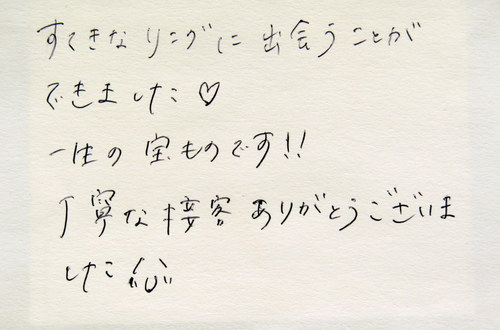 すてきなリングに出会うことが
できました♡
一生の宝ものです!!
丁寧な接客ありがとうございま
した